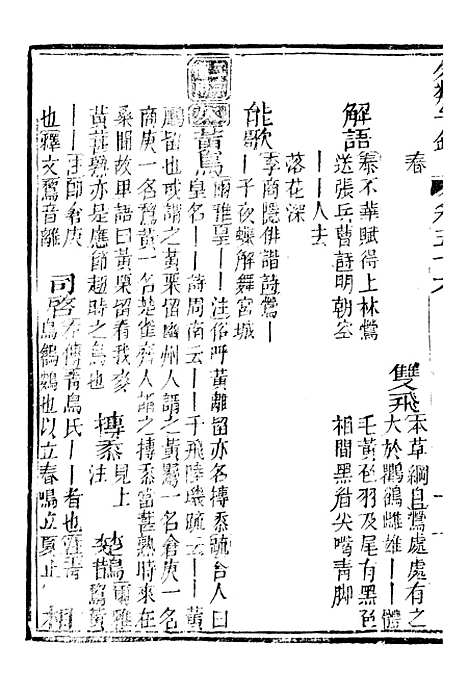 卷五十六
春
雙飛
本草綱目鶯處處有之
大於鸜鵒雌雄——體
解語
泰不華賦得上林鶯
送張兵曹詩明朝空
毛黃色羽及尾有黑色
相間黑眉尖嘴青脚
——人去
落花深
能歌
李商隱俳諧詩鶯—
—子夜蝶解舞宮城
黃鳥
爾雅皇——注俗呼黃離留亦名搏黍疏舍人曰
皇名——詩周南云——于飛陸璣疏云——黃
鸝留也或謂之黃栗留幽州人謂之黃鸎一名倉庚一名
商庚一名鵹黃一名楚雀齊人謂之搏黍當葚熟時來在
桑間故里語曰黃栗留看我麥
黃葚熟亦是應節趨時之鳥也
搏黍
見上
注
楚鵲
爾雅
鵹黃
——注卽倉庚
也釋文鵹音離
司啓
左傳青鳥氏——者也注青
鳥鶬鴳也以立春鳴立夏止